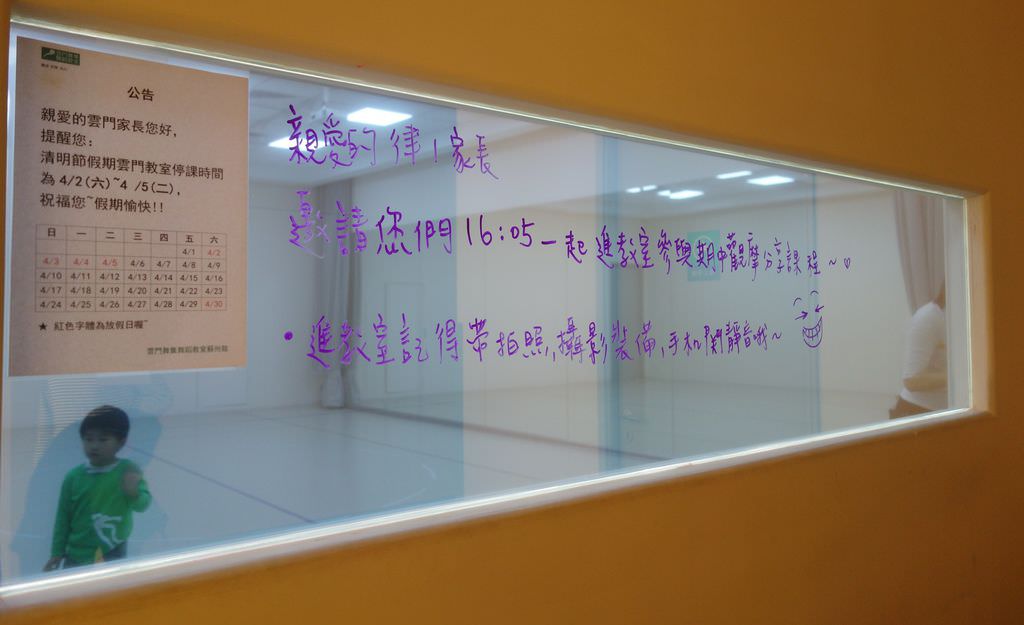 公告
親愛的雲門家長您好，
提醒您：
清明節假期雲門教室停課時間
為 4/2(六)~4 /5(二)，
祝福您~假期愉快!!
日 一 二 三 四 五 六
4/1 4/2
4/3 4/4 4/5 4/6 4/7 4/8 4/9
4/10 4/11 4/12 4/13 4/14 4/15 4/16
4/17 4/18 4/19 4/20 4/21 4/22 4/23
4/24 4/25 4/26 4/27 4/28 4/29 4/30
★ 紅色字體為放假日喔~
雲門舞集舞蹈教室
親愛的 律1家長
邀請您們16:05一起進教室參與期中觀摩分享課程~
•進教室記得帶拍照,攝影裝備,手机關靜音哦~